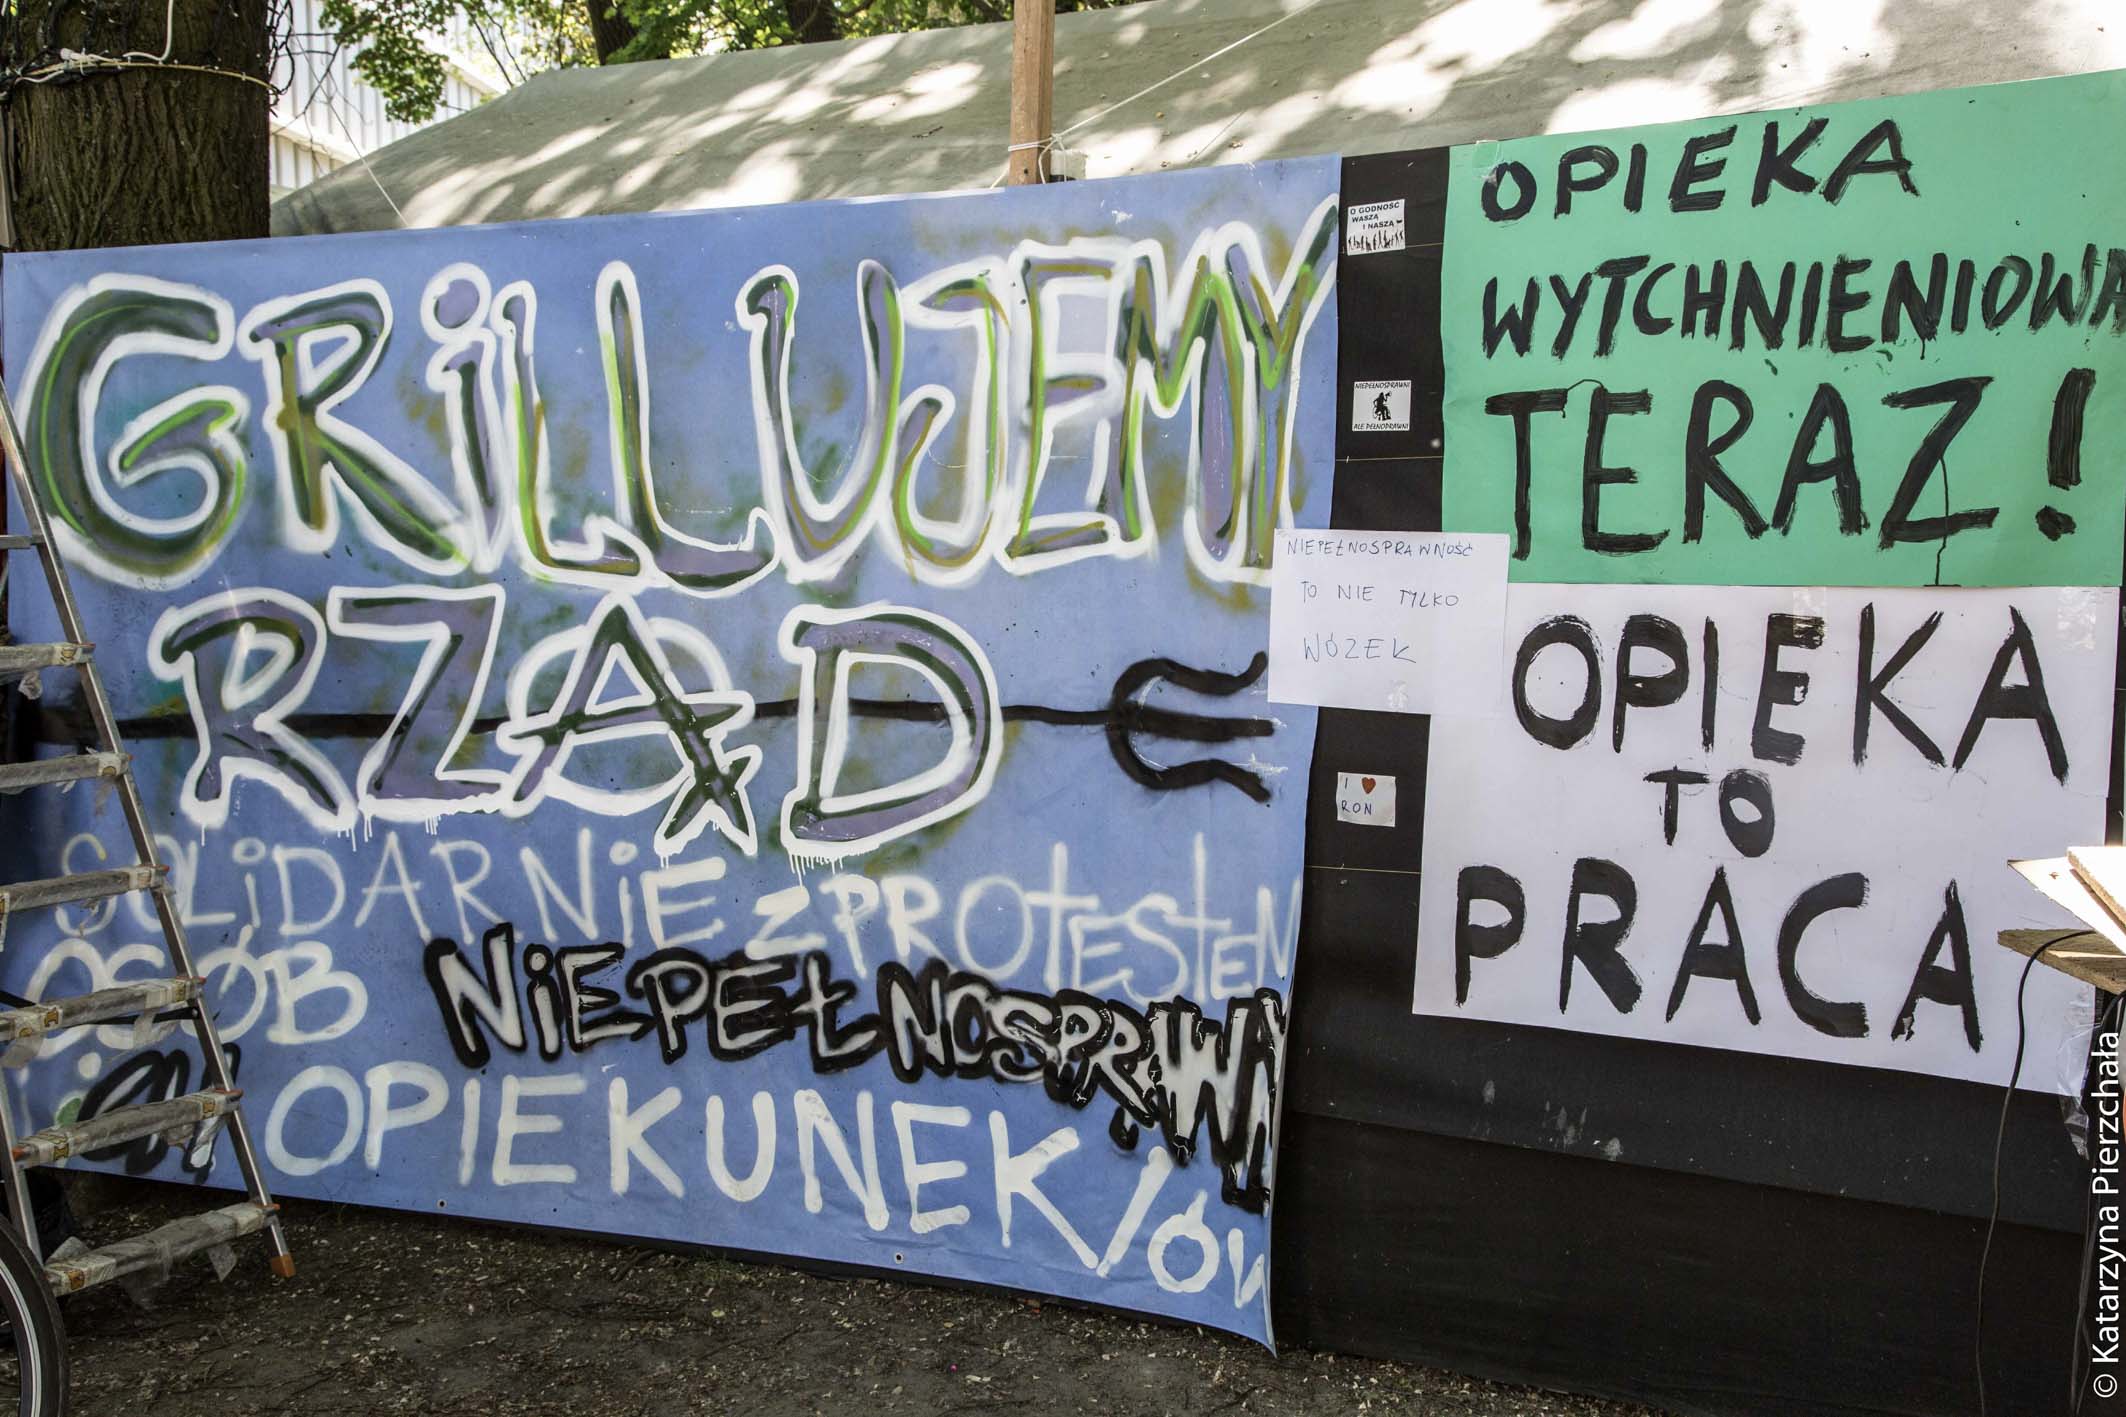 GRiLLUJEMY
RZĄD
SOLiDARNiE Z PROtEStEM
OSÓB NiEPEŁNOSPRAWNY
OPIEKUNEK/ÓW
O GODNOŚĆ
WASZĄ
I NASZĄ
NIEPEŁNOSPRAWNI
ALE PEŁNOPRAWNI
NIEPEŁNOSPRAWNOŚĆ
TO NIE TYLKO
WÓZEK
I ❤
RON
OPIEKA
WYTCHNIENIOWA
TERAZ!
OPIEKA
TO
PRACA
© Katarzyna Pierzchała